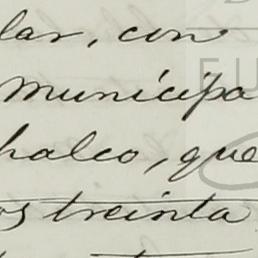 lar, con
municipa
halco, que
os treinta